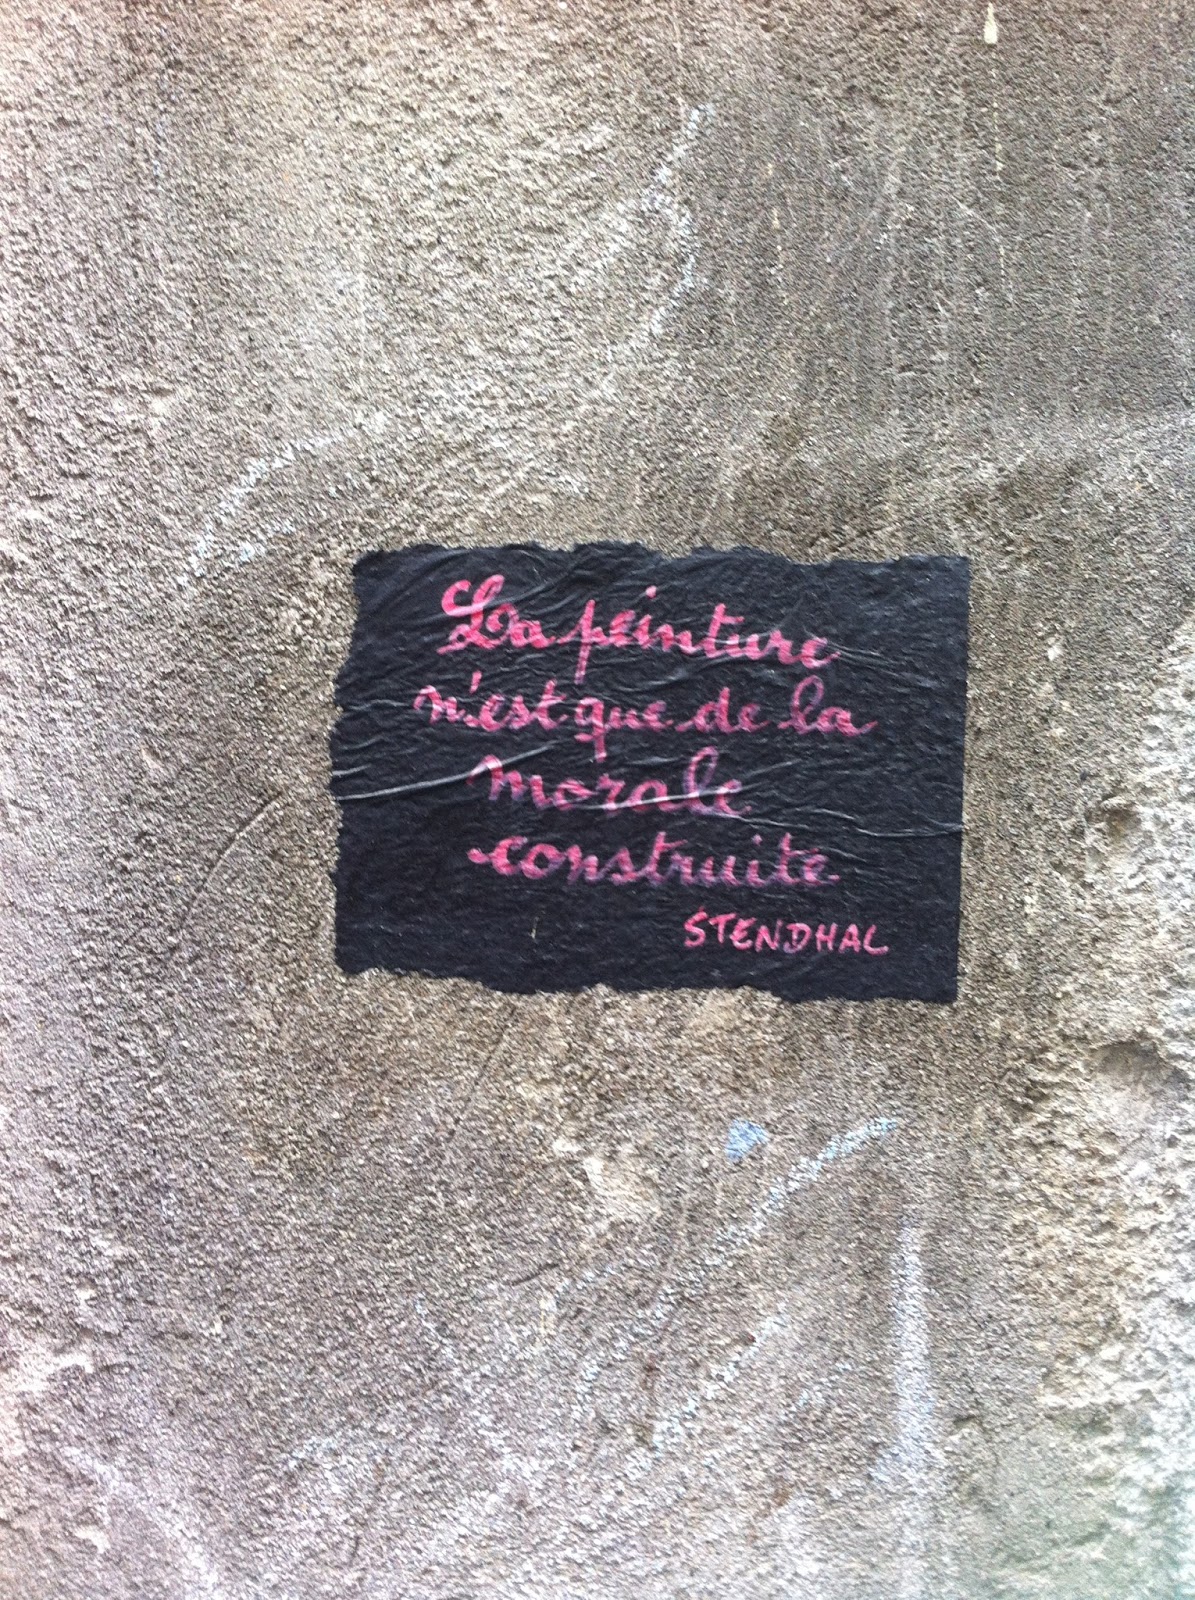 La peinture
n'est que de la
morale
construite
STENDHAL